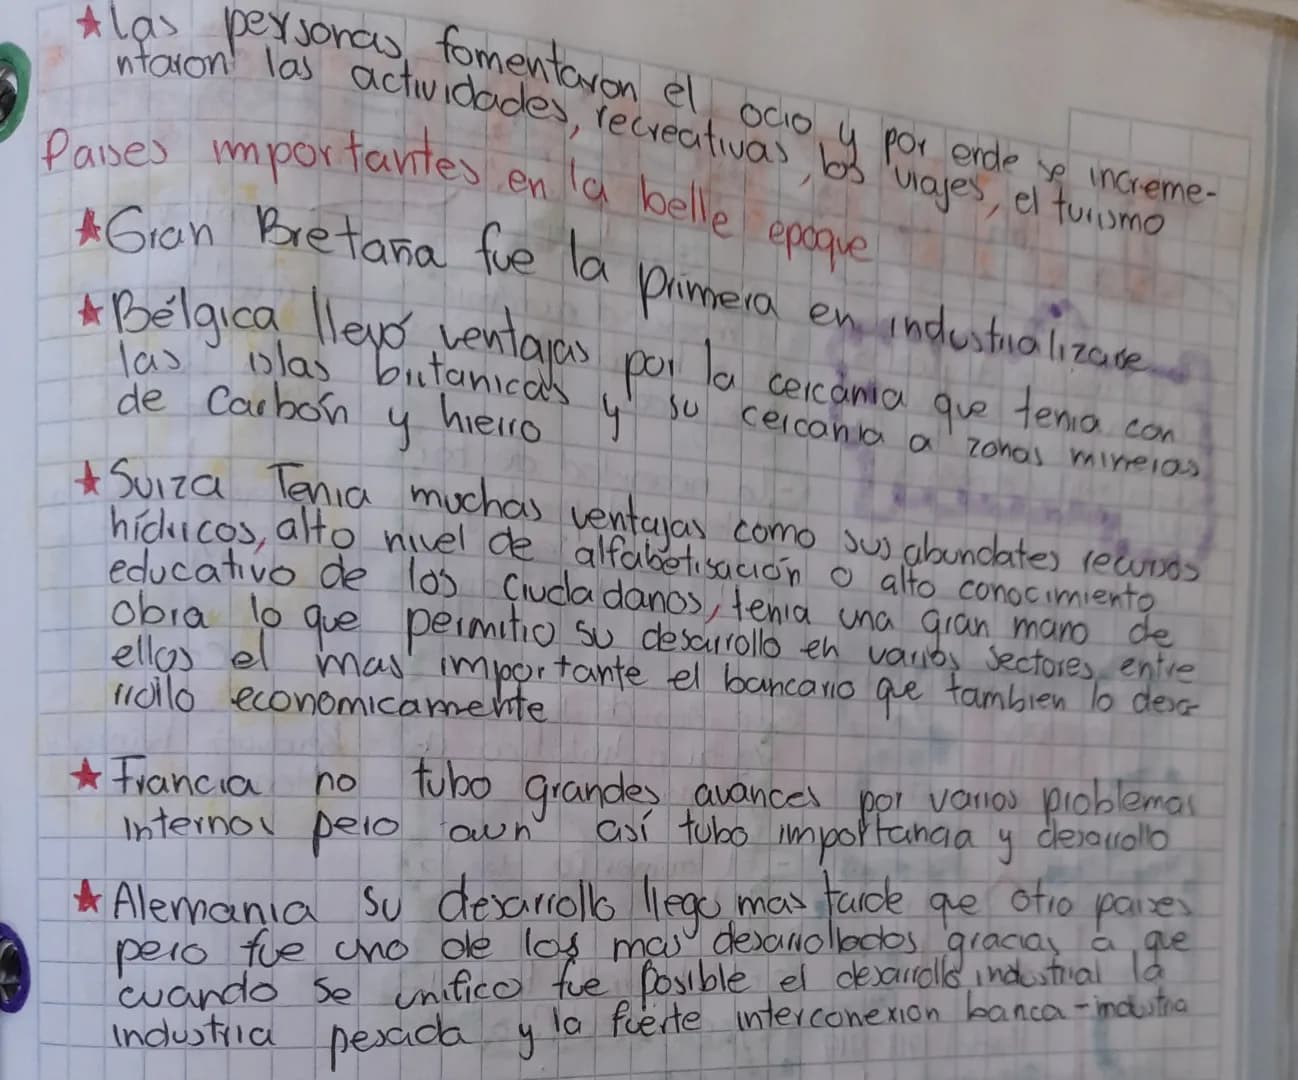 ★ las personas fomentaron el ocio y por ende se increme-
ntaron las actividades, recreativas, los viajes, el turismo
Paises importantes en la belle epoque
★ Gran Bretaña fue la primera en industrializarse
★ Bélgica llevó ventajas por la cercania que tenia con
las islas britanicas y su cercania a zonas mineras
de Carbón y hierro
★ Suiza Tenia muchas ventajas como sus abundates recursos
hídricos, alto nivel de alfabetisación o alto conocimiento
educativo de los ciudadanos, tenia una gran mano de
obra lo que permitio su desarrollo en varios sectores entre
ellos el mas importante el bancario que tambien lo desa
rrollo economicamente
★ Francia no tubo grandes avances por varios problemas
internos pero aun así tubo importancia y desarrollo
★ Alemania su desarrollo llego mas tarde que otro paises
pero fue uno de los mas desarrollados gracias a que
cuando se unifico fue posible el desarrollo industrial la
industria pesada y la fuerte interconexion banca-industria